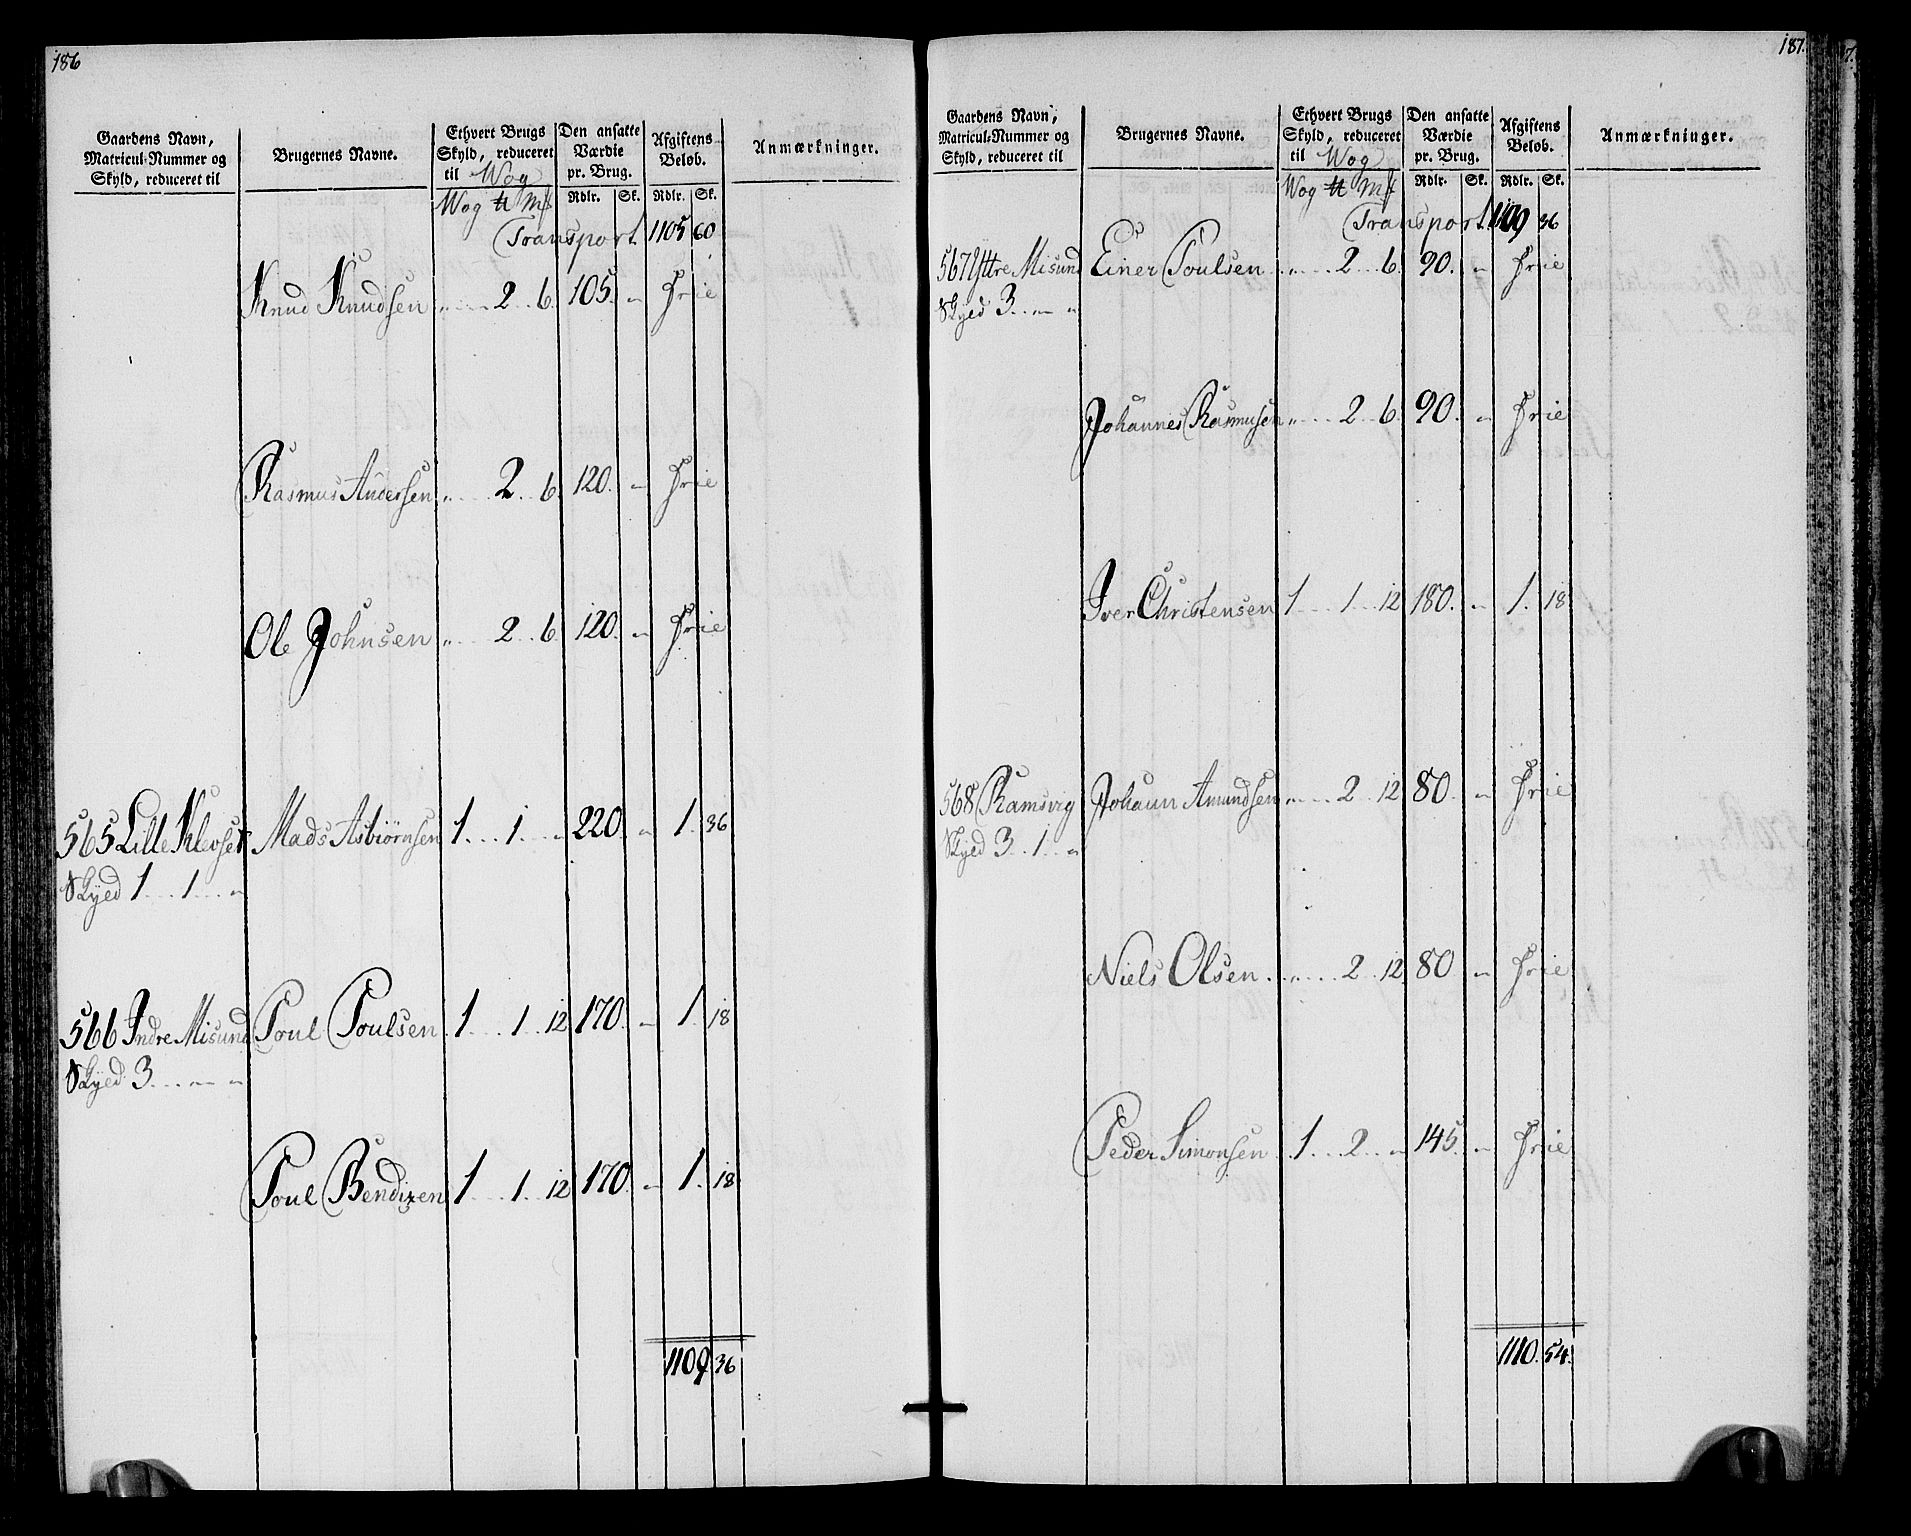 186
Gaardens Navn,
Matricul-Nummer og
Skyld, reduceret til
Brugernes Navne.
Ethvert Brugs
Skyld, reduceret
til Wog
Wog ℔ Mk
Den ansatte
Værdie
pr. Brug.
Rdlr. Sk.
Afgiftens
Beløb.
Rdlr. Sk.
Anmærkninger.
Transport. 1105 60
Knud Knudsen „ 2 6 105 „ Frie
Rasmus Andersen „ 2 6 120 „ Frie
Ole Johnsen „ 2 6 120 „ Frie
565 Lille Klevset Mads Asbiørnsen 1 1 „ 220 „ 1 36
Skyed 1 1 „
566 Indre Misund Poul Poulsen 1 1 12 170 „ 1 18
Skyed 3 „ „
Poul Bendixen 1 1 12 170 „ 1 18
1109 36
187.
Gaardens Navn,
Matricul-Nummer og
Skyld, reduceret til
Brugernes Navne.
Ethvert Brugs
Skyld, reduceret
til Wog
Wog ℔ Mk
Den ansatte
Værdie
pr. Brug.
Rdlr. Sk.
Afgiftens
Beløb.
Rdlr. Sk.
Anmærkninger.
Transport. 1109 36
567 Yttre Misund Einer Poulsen „ 2 6 90 „ Frie
Skyed 3 „ „
Johannes Rasmusen „ 2 6 90 „ Frie
Iver Christensen 1 1 12 180 „ 1 18
568 Ramsvig Johann Amundsen „ 2 12 80 „ Frie
Skyed 3 1 „
Niels Olsen „ 2 12 80 „ Frie
Peder Simonsen 1 2 „ 145 „ Frie
1110 54